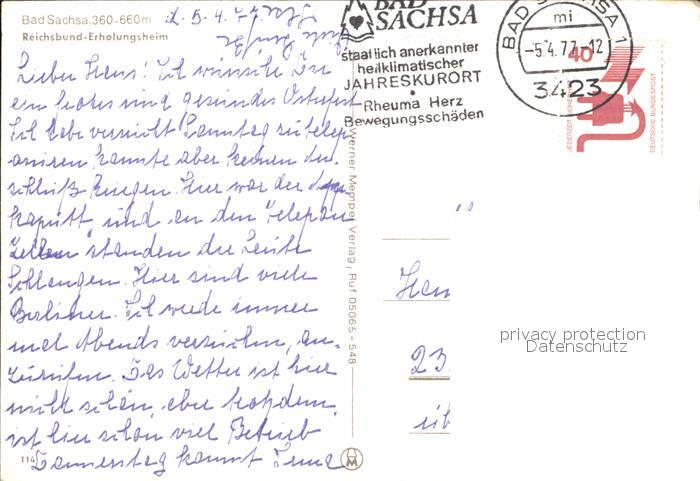 Bad Sachsa. 360-660m
d. 5.4.77.
Reichsbund-Erholungsheim
Lieber Hans! Ich wünsche Dir
ein frohes und gesundes Osterfest
Ich habe versucht Samstag zu telep
onieren konnte aber keinen An-
schluß kriegen. Hier war der
kaputt und an den Telepon
Zellen standen die Leute
Schlangen. Hier sind viele
Berliner. Ich werde immer
mal Abends versuchen, an-
zurufen. Das Wetter ist hier
nicht schön, aber trotzdem,
ist hier schon viel Betrieb
Donnerstag kommt
114
Werner Mempel Verlag, Ruf 05065 - 548
BAD
SACHSA
staatlich anerkannter
heilklimatischer
JAHRESKURORT
Rheuma Herz
Bewegungsschäden
BAD SACHSA 1
mi
-5.4.77-12
3423
40
JEDERZEIT SICHERHEIT
DEUTSCHE BUNDESPOST
23
üb
privacy protection
Datenschutz